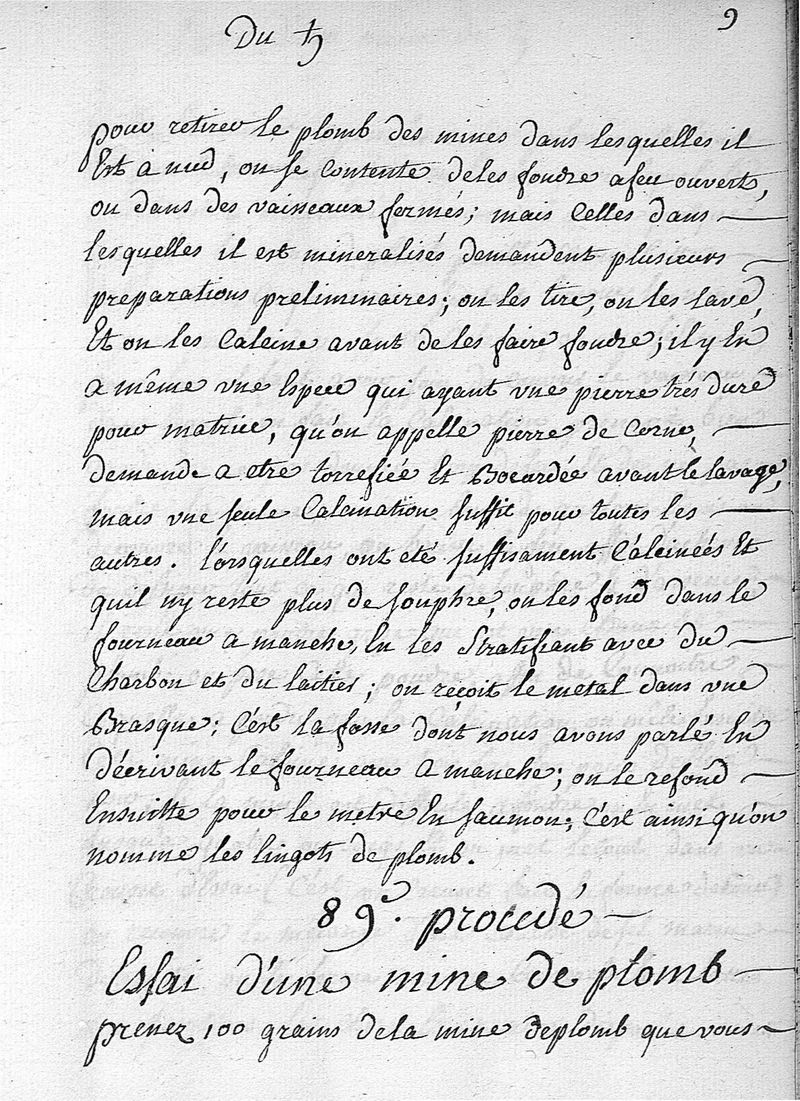 9
Du ♄
pour retirer le plomb des mines dans lesquelles il
Est a nud, on se Contente de les foudre a feu ouverts,
ou dans des vaisseaux fermés; mais Celles dans
lesquelles il est mineralisés demandent plusieurs
preparations preliminaires; on les tire, on les lave,
Et on les Calcine avant de les faire foudre; il y En
a même vne Espece qui ayant vne pierre trés dure
pour matrice, qu'on appelle pierre de Corne,
demande a etre torrefiée Et Bocardée avant le lavage,
mais vne seule Calcination suffit pour toutes les
autres. lorsquelles ont eté suffisament Calcinéés Et
quil ny reste plus de souphre, on les fond dans le
fourneau a manche, En les Stratifiant avec du
Charbon et du laities; on reçoit le metal dans vne
Brasque; C'est la fosse dont nous avons parlé En
décrivant le fourneau a manche; on le refond
Ensuitte pour le metre En saumon; C'est ainsi qu'on
nomme les lingots de plomb.
89e. procedé
Essai d'une mine de plomb
prenez 100 grains de la mine de plomb que vous